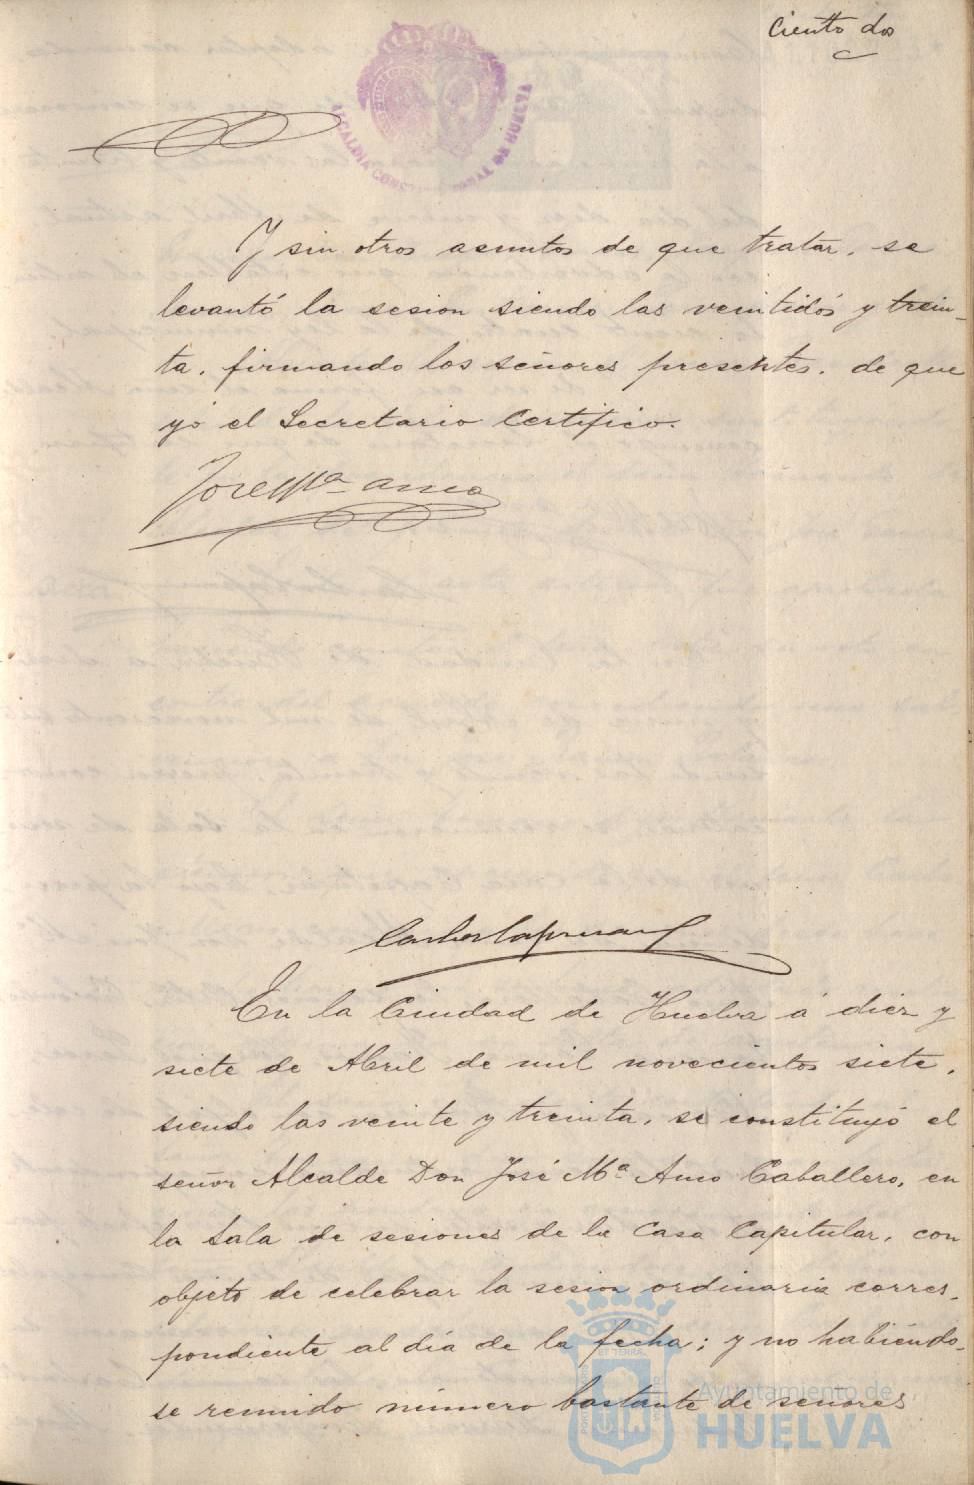 Ciento dos
ALCALDIA CONSTITUCIONAL DE HUELVA
Y sin otros asuntos de que tratar, se
levantó la sesion siendo las veintidós y trein-
ta, firmando los señores presentes, de que
yó el Secretario Certifico.
José Mª Amo
Carlos
En la Ciudad de Huelva á diez y
siete de Abril de mil novecientos siete,
siendo las veinte y treinta, se constituyó el
señor Alcalde Don José Mª Amo Caballero, en
la Sala de sesiones de la Casa Capitular, con
objeto de celebrar la sesion ordinaria corres-
pondiente al día de la fecha; y no habiendo-
se reunido número bastante de señores
Ayuntamiento de
HUELVA